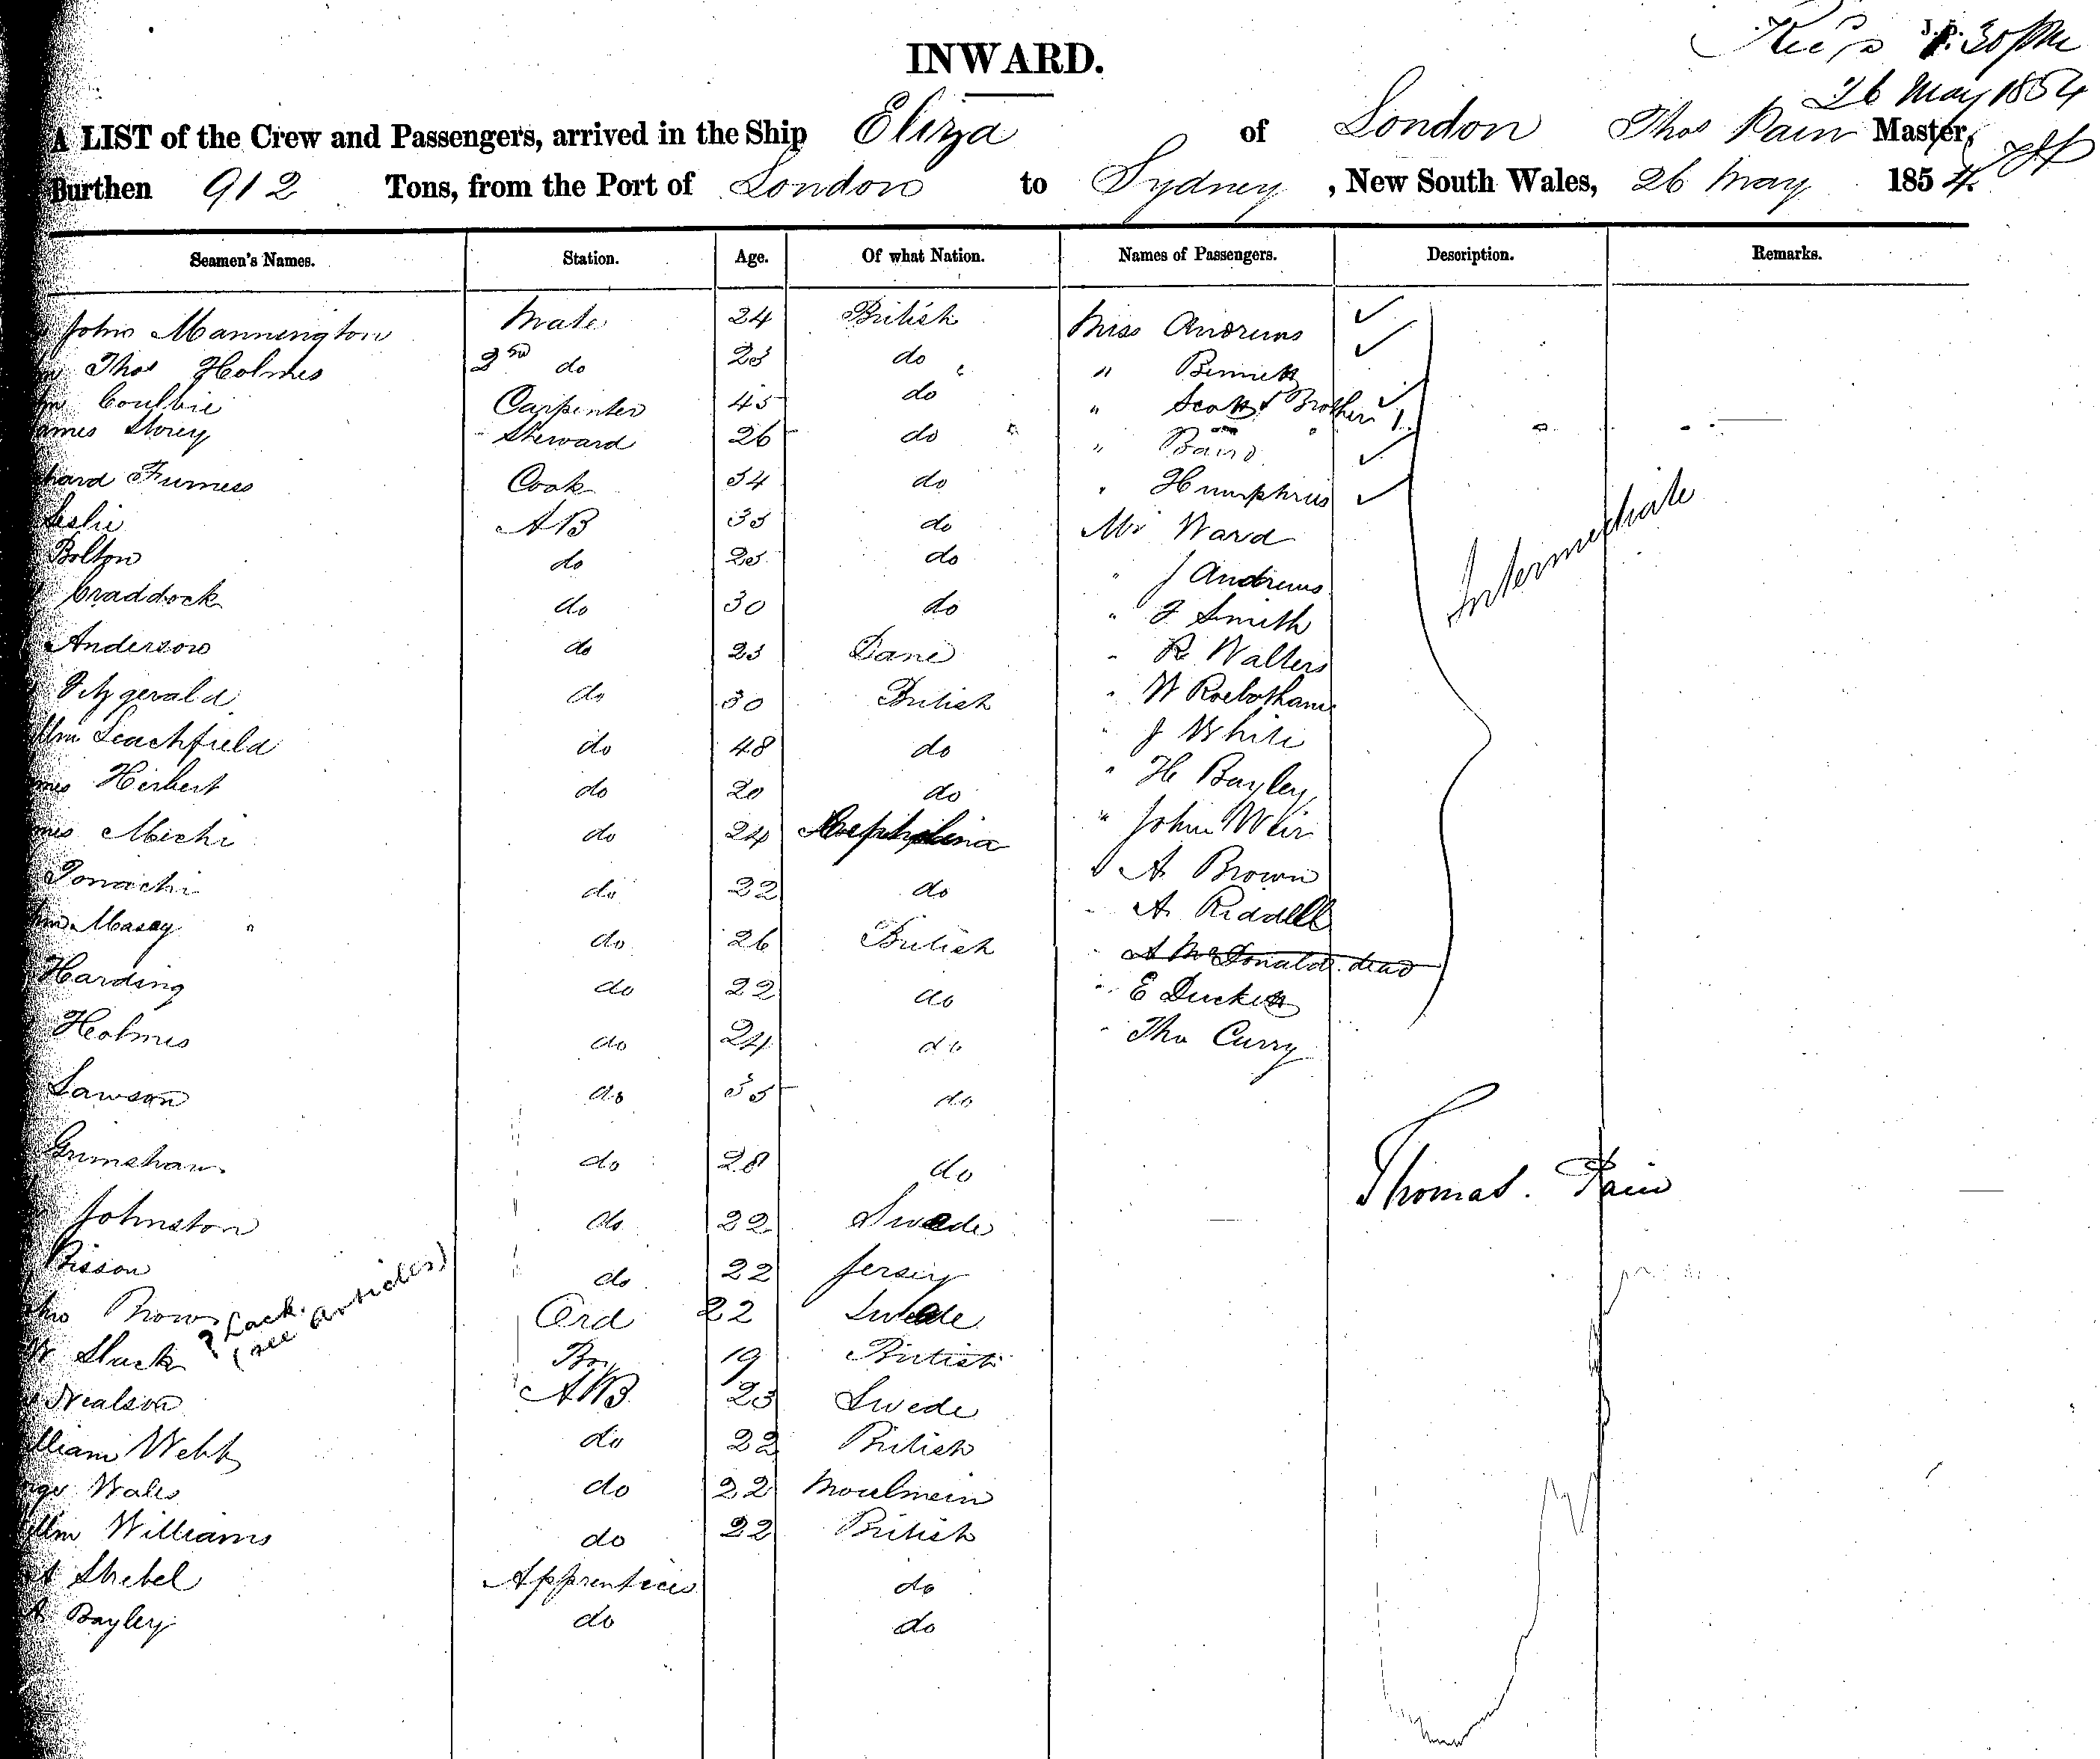 INWARD.
26 May 1854
A LIST of the Crew and Passengers, arrived in the Ship Eliza of London Thos Pain Master,
Burthen 912 Tons, from the Port of London to Sydney, New South Wales, 26 May 1854
Seamen's Names. Station. Age. Of what Nation. Names of Passengers. Description. Remarks.
John Mannington Mate 24 British Miss Andrews ✓
Thos Holmes 2nd do 23 do " Bennett ✓
Carpenter 45 do " Scott & Brother 1 ✓
Storey Steward 26 do " Baird ✓
Furness Cook 34 do " Humphries ✓
Leslie AB 35 do Mr Ward
Bolton do 25 do " J Andrews
Craddock do 30 do " J Smith
Anderson do 23 Dane " R Walters
Fitzgerald do 30 British " W Roebotham
Leachfield do 48 do " J White
Herbert do 20 do " H Bayley
Michi do 24 " John Weir
do 22 do " A Brown
Masey do 26 British " A Riddell
" A McDonald dead
Harding do 22 do " E Duckett
Holmes do 24 do " Thos Curry
Intermediate
Lawson do 35 do
Grimshaw do 28 do
Thomas Pain
Johnston do 22 Swede
Bisson do 22 Jersey
Brown Ord 22 Swede
Slack ? Lack. (see articles) Boy 19 British
Nealson AB 23 Swede
William Webb do 22 British
Wales do 22 Moulmein
Williams do 22 British
Strebel Apprentices do
Bayley do do